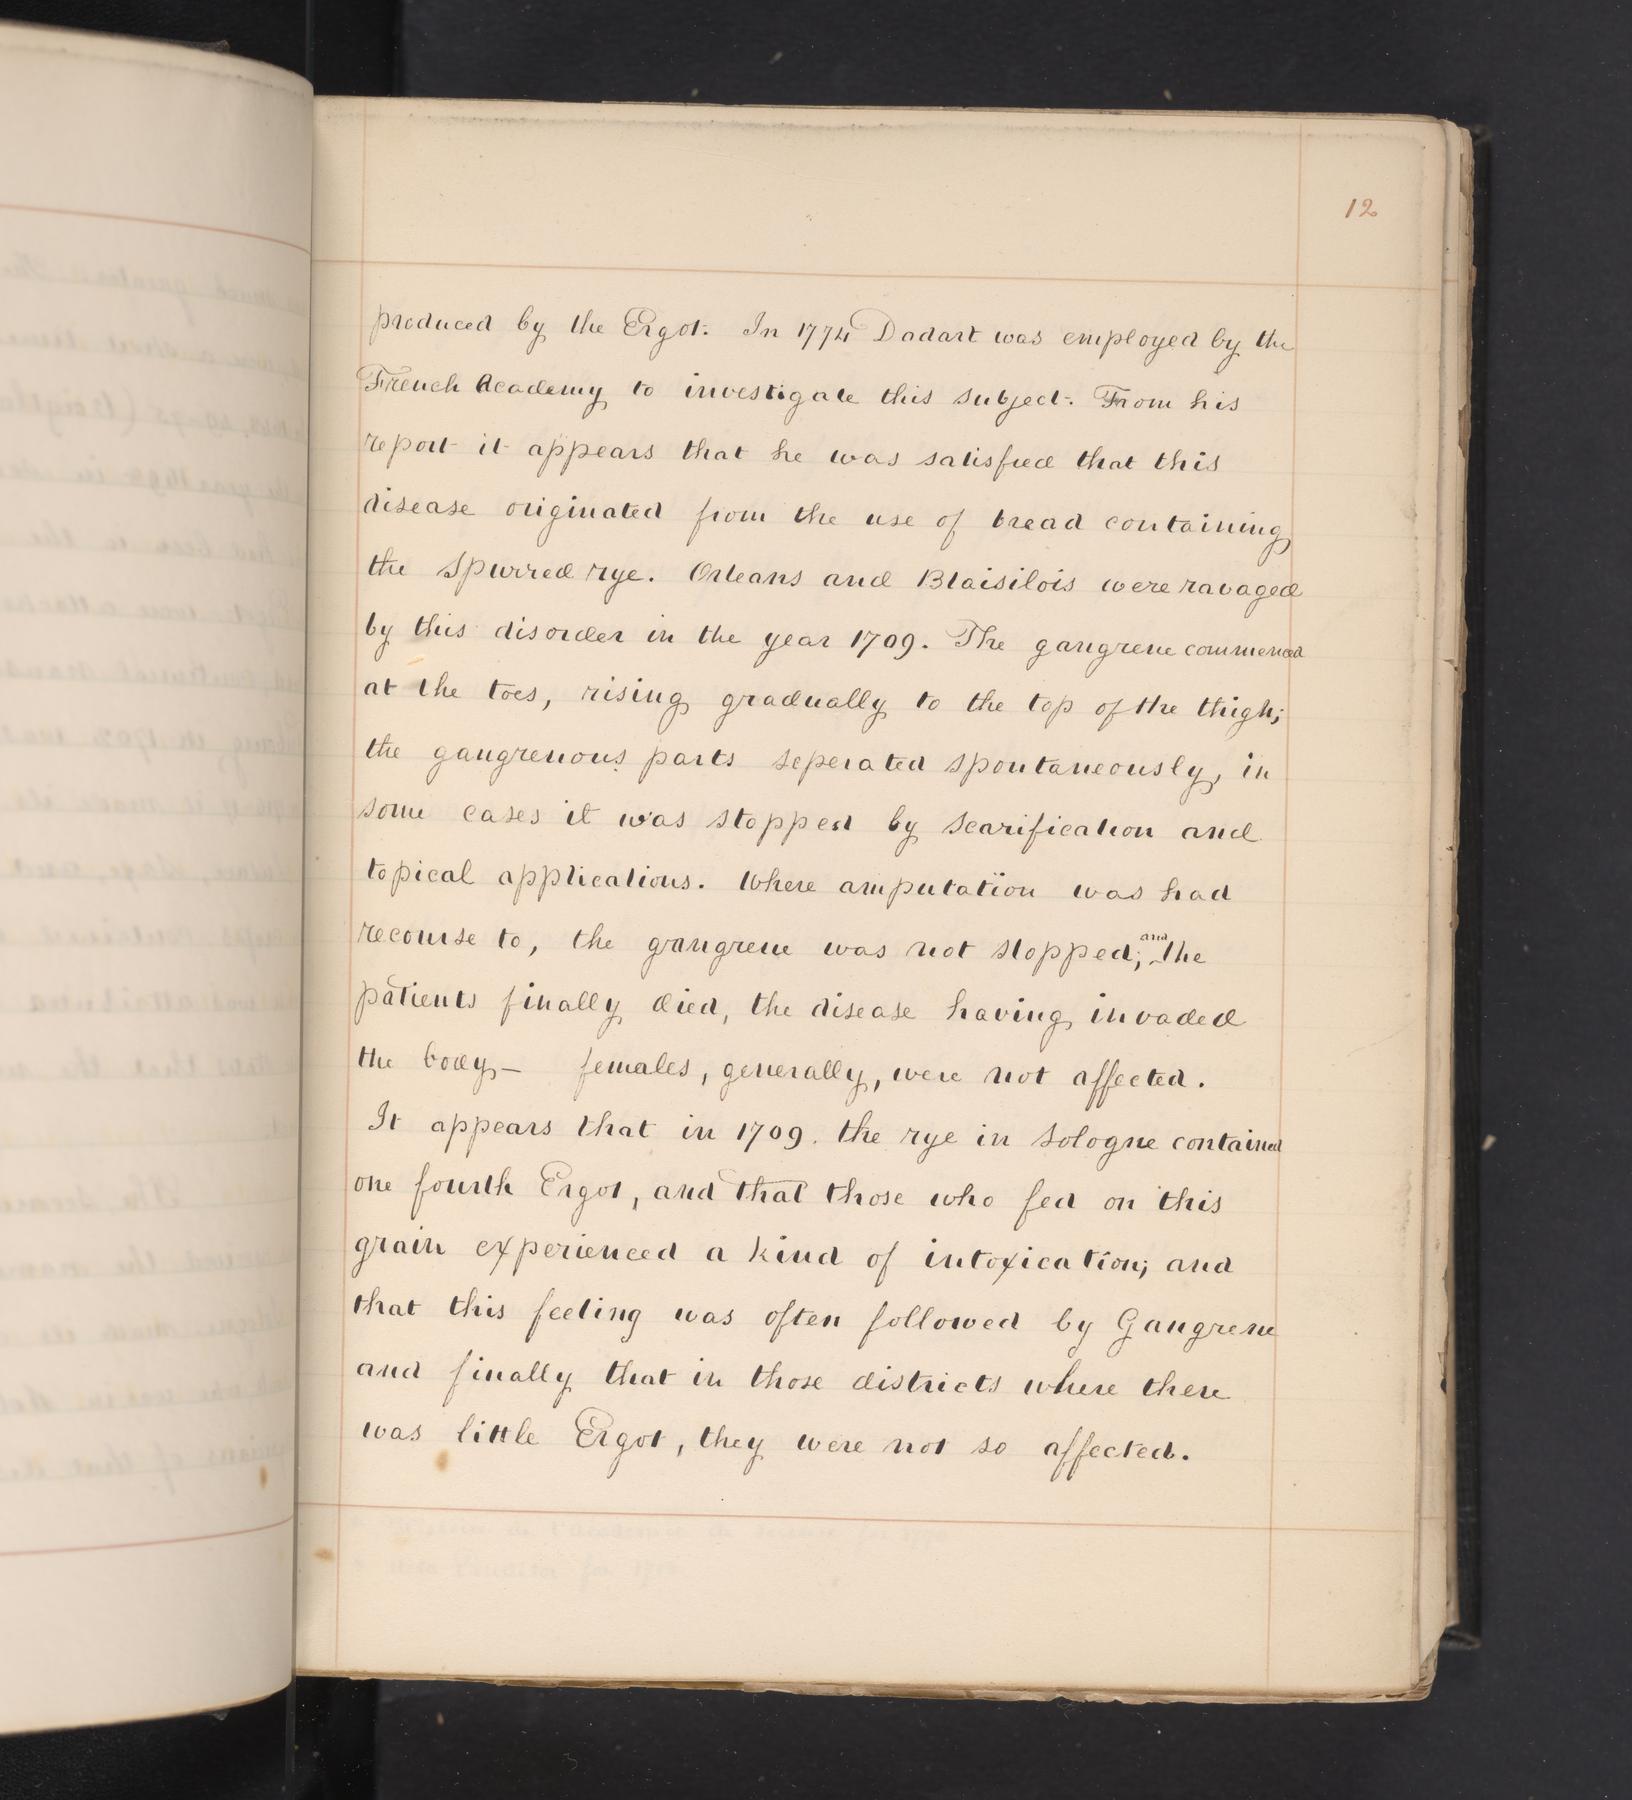 12
produced by the Ergot. In 1774 Dodart was employed by the
French Academy to investigate this subject. From his
report it appears that he was satisfied that this
disease originated from the use of bread containing
the spurred rye. Orleans and Blaisilois were ravaged
by this disorder in the year 1709. The gangrene commenced
at the toes, rising gradually to the top of the thigh;
the gangrenous parts seperated spontaneously, in
some cases it was stopped by scarification and
topical applications. Where amputation was had
recourse to, the gangrene was not stopped; and the
patients finally died, the disease having invaded
the body — females, generally, were not affected.
It appears that in 1709. the rye in Sologne contained
one fourth Ergot, and that those who fed on this
grain experienced a kind of intoxication; and
that this feeling was often followed by Gangrene
and finally that in those districts where there
was little Ergot, they were not so affected.